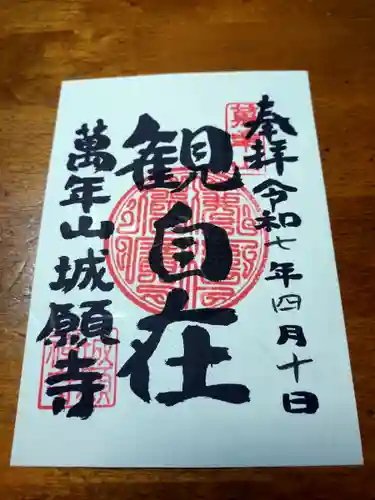 奉拝 令和七年四月十日
観自在
萬年山城願寺